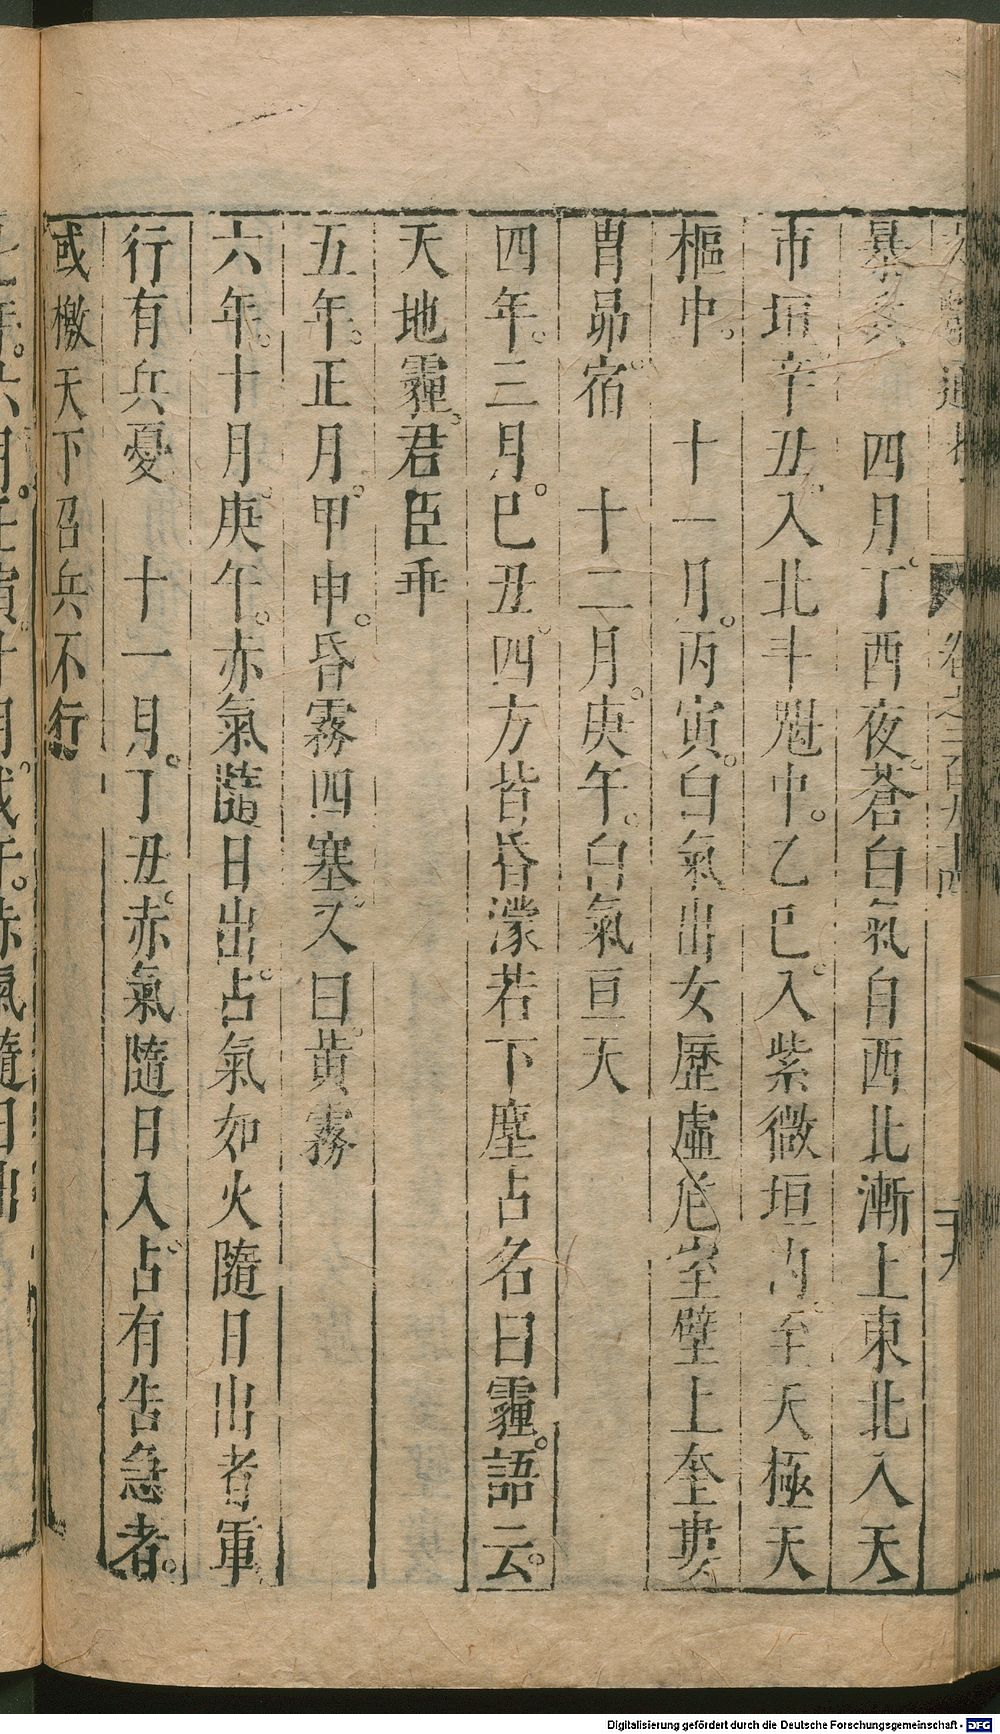 文獻通考 卷之二百九十四 二十九
暴兵 四月丁酉夜蒼白氣自西北漸上東北入天
市垣辛丑入北斗魁中乙巳入紫微垣內至天極天
樞中 十一月丙寅白氣出女歷虛危室壁上奎婁
胃昴宿 十二月庚午白氣亘天
四年三月巳丑四方皆昏濛若下塵占名曰霾語云
天地霾君臣乖
五年正月甲申昏霧四塞又曰黃霧
六年十月庚午赤氣隨日出占氣如火隨日出者軍
行有兵憂 十一月丁丑赤氣隨日入占有告急者
或檄天下召兵不行
六月壬寅十月戊午赤氣隨日出
Digitalisierung gefördert durch die Deutsche Forschungsgemeinschaft - DFG